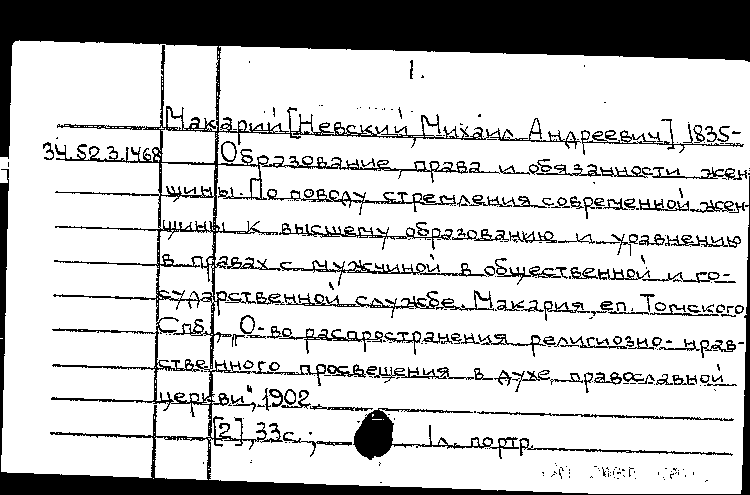 1.
Макарий [Невский, Михаил Андреевич], 1835-
34.52.3.1468 Образование, права и обязанности жен
щины. По поводу стремления современной жен-
щины к высшему образованию и уравнению
в правах с мужчиной в общественной и го-
сударственной службе. Макария, еп. Томского
Спб., "О-во распространения религиозно-нрав-
ственного просвещения в духе православной
церкви", 1902.
[2], 33с.; 1л. портр.